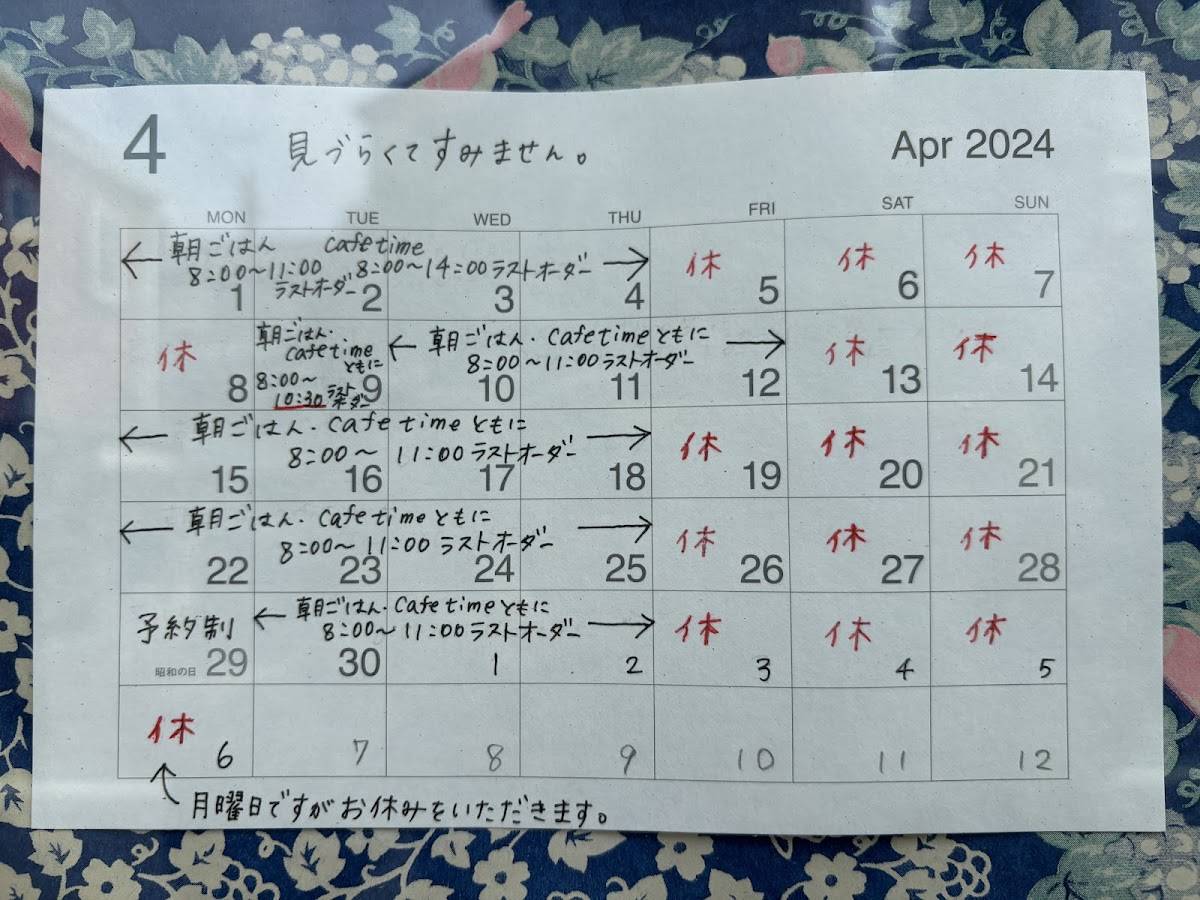 4 見づらくてすみません。 Apr 2024
MON TUE WED THU FRI SAT SUN
朝ごはん cafe time
8:00〜11:00 8:00〜14:00ラストオーダー
ラストオーダー
休 休 休
1 2 3 4 5 6 7
休
朝ごはん・
cafe time
ともに
8:00〜
10:30 ラストオーダー
朝ごはん・cafe timeともに
8:00〜11:00ラストオーダー
休 休
8 9 10 11 12 13 14
朝ごはん・cafe timeともに
8:00〜 11:00ラストオーダー
休 休 休
15 16 17 18 19 20 21
朝ごはん・cafe timeともに
8:00〜 11:00 ラストオーダー
休 休 休
22 23 24 25 26 27 28
予約制
朝ごはん・cafe timeともに
8:00〜 11:00ラストオーダー
休 休 休
昭和の日 29 30 1 2 3 4 5
休
6 7 8 9 10 11 12
月曜日ですがお休みをいただきます。